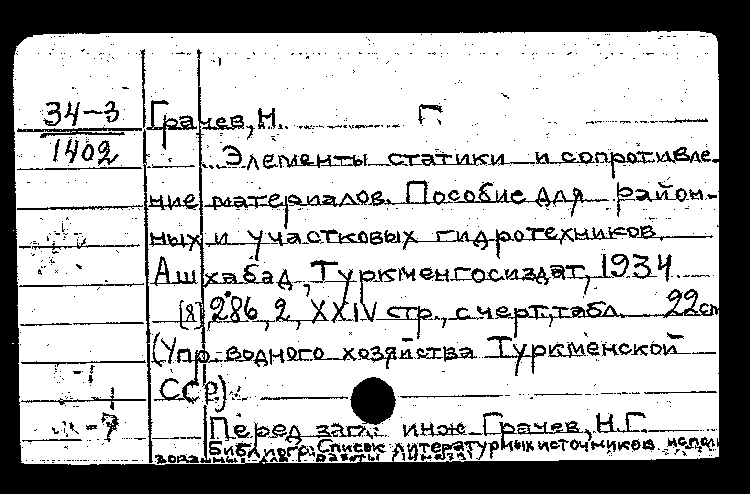 34-3
1402
Грачев, Н. Г.
...Элементы статики и сопротивле-
ние материалов. Пособие для район-
ных и участковых гидротехников.
Ашхабад, Туркменгосиздат, 1934
[8], 286, 2, XXIV стр., с черт., табл. 22 cm
(Упр. водного хозяйства Туркменской
ССР)
Перед загл.: инж. Грачев, Н.Г.
Библиогр: Список литературных источников, исполь
зованных для работы